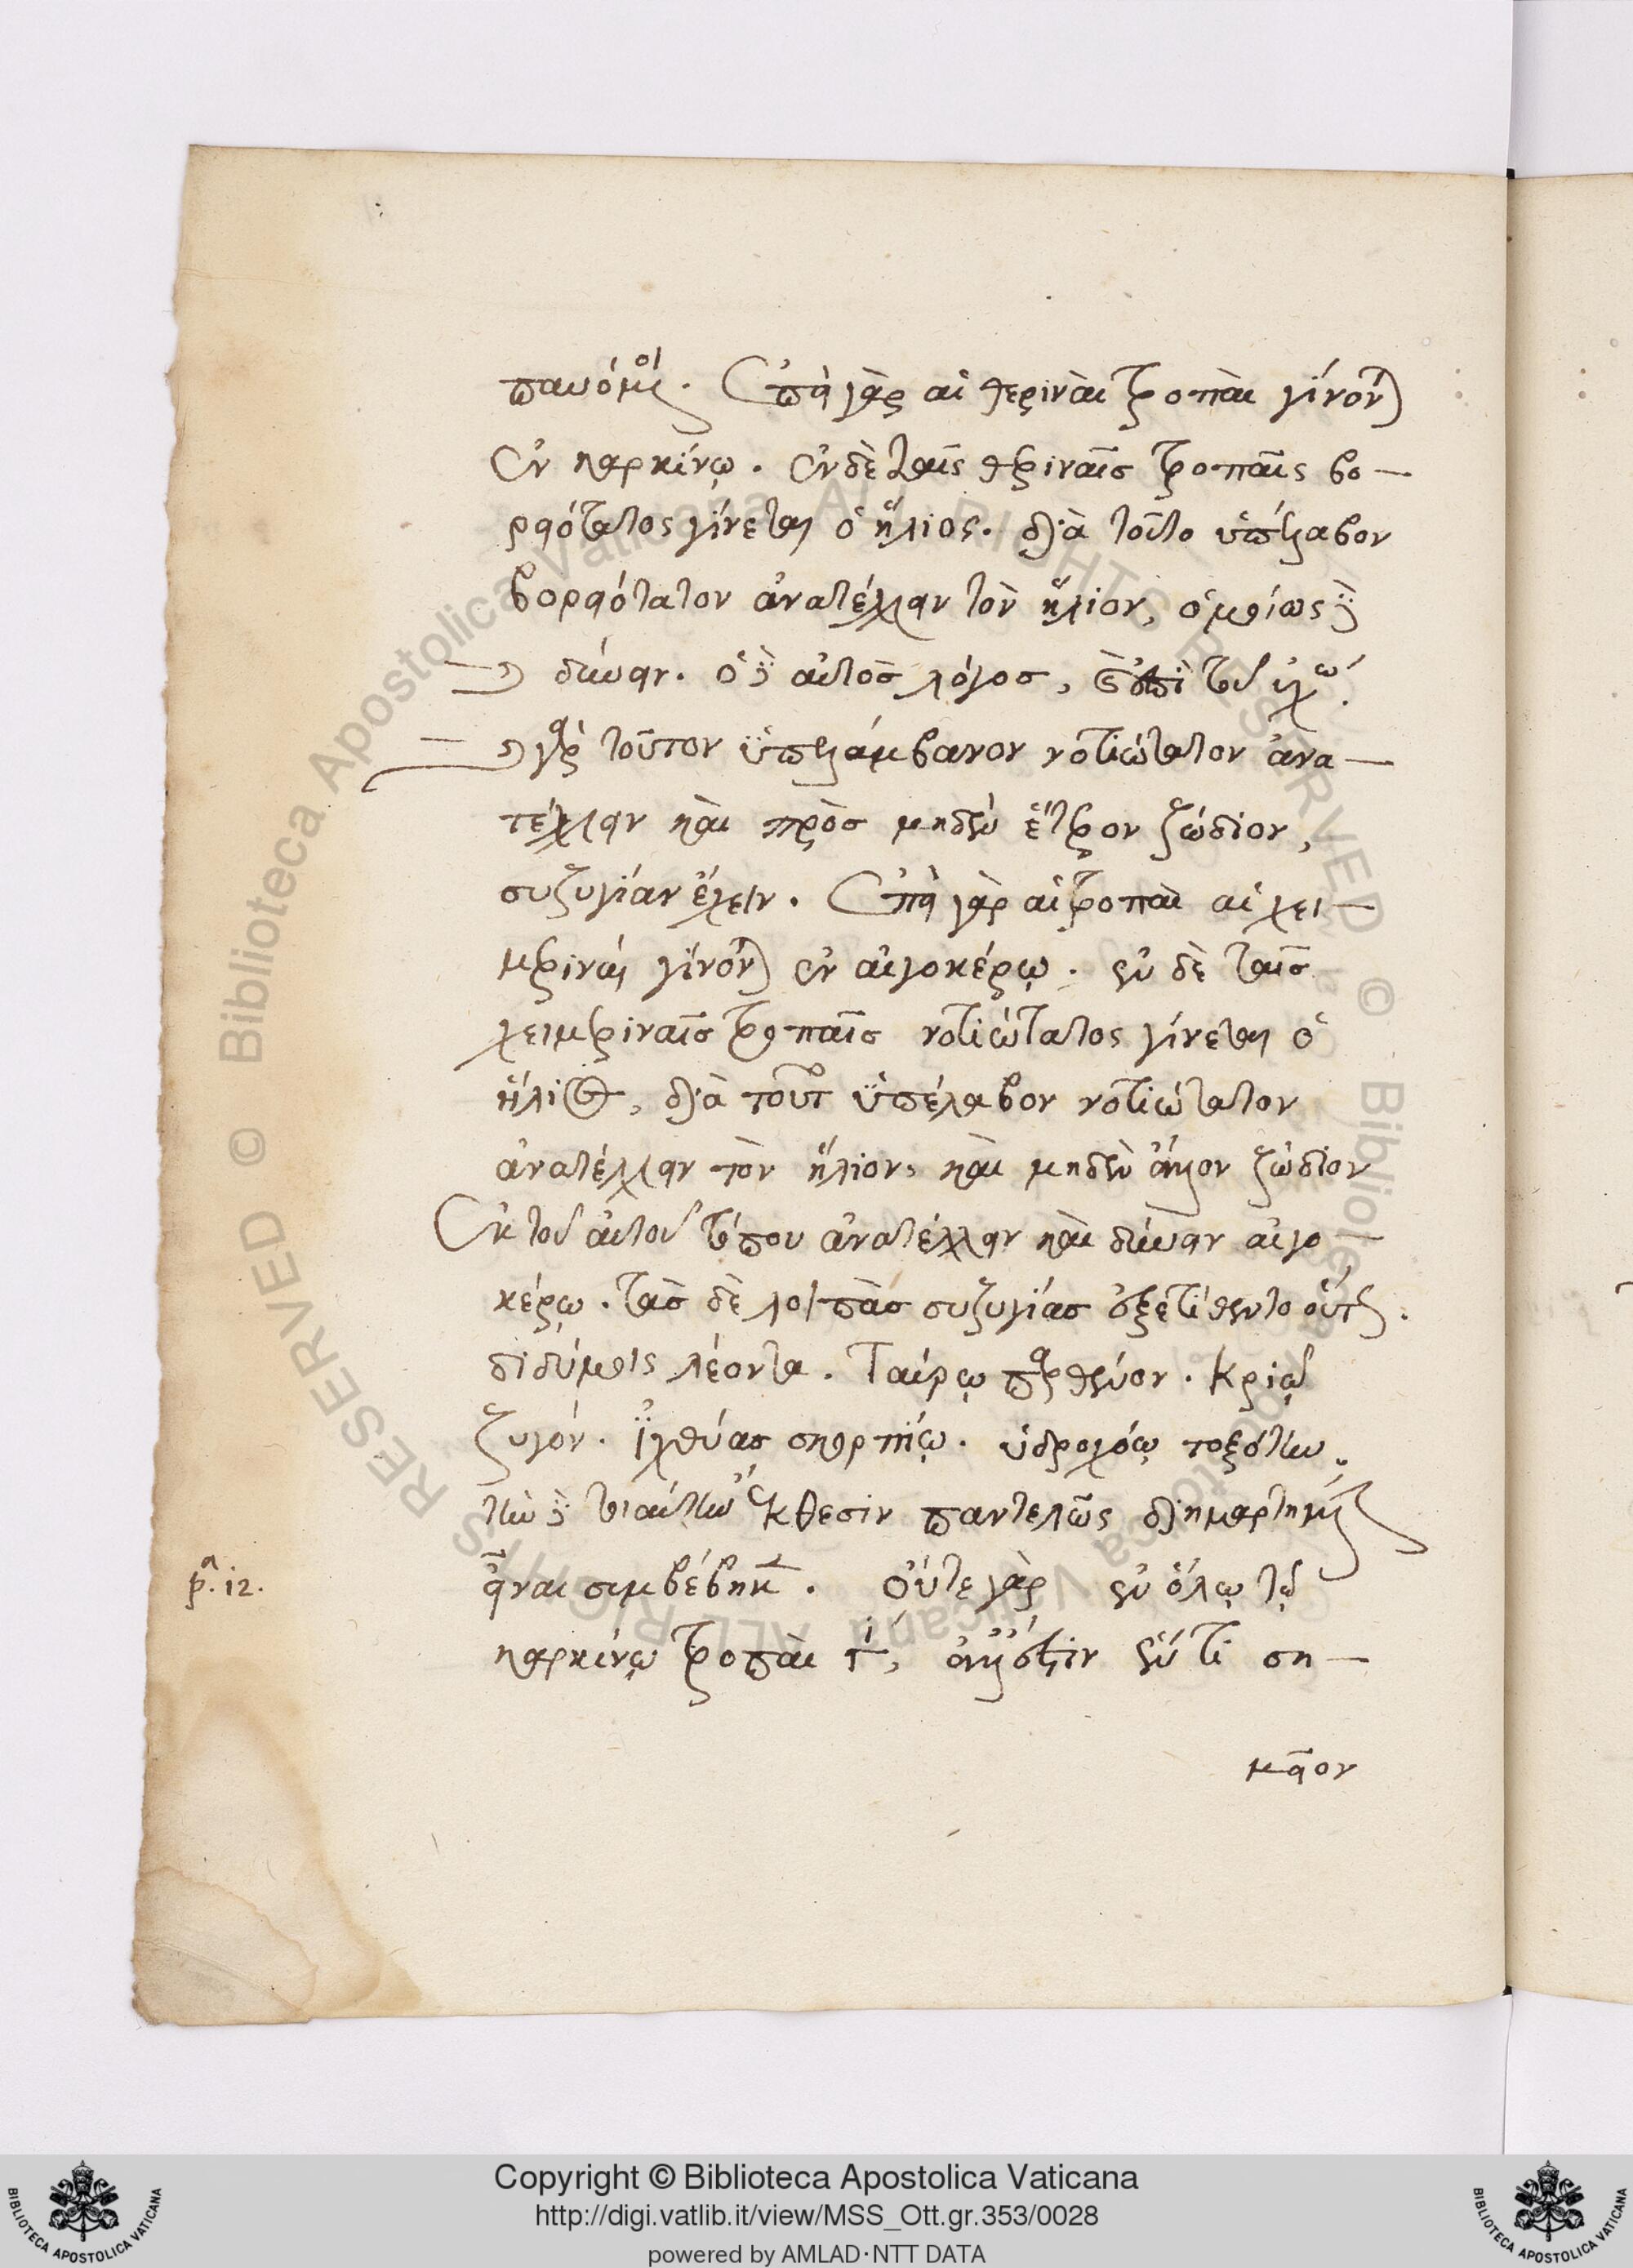 πανόμοι. Ἐπεὶ γὰρ αἱ θεριναὶ τροπαὶ γίνονται
ἐν καρκίνῳ. ἐν δὲ ταῖς θεριναῖς τροπαῖς βο-
ρειότατος γίνεται ὁ ἥλιος. διὰ τοῦτο ὑπέλαβον
βορειότατον ἀνατέλλειν τὸν ἥλιον, ὁμοίως δὲ
καὶ δύνειν. ὁ δὲ αὐτὸς λόγος, ἐπὶ τοῦ αἰγόκερω.
καὶ γὰρ τοῦτον ὑπελάμβανον νοτιώτατον ἀνα-
τέλλειν καὶ πρὸς μηδὲν ἕτερον ζώδιον,
συζυγίαν ἔχειν. Ἐπεὶ γὰρ αἱ τροπαὶ αἱ χει-
μεριναὶ γίνονται ἐν αἰγοκέρῳ. ἐν δὲ ταῖς
χειμεριναῖς τροπαῖς νοτιώτατος γίνεται ὁ
ἥλιος, διὰ τοῦτο ὑπέλαβον νοτιώτατον
ἀνατέλλειν τὸν ἥλιον, καὶ μηδὲν ἄλλον ζώδιον
Ἐκ τοῦ αὐτοῦ τόπου ἀνατέλλειν καὶ δύνειν αἰγο-
κέρῳ. τὰς δὲ λοιπὰς συζυγίας ἐξετίθεντο οὕτως.
διδύμοις λέοντα. Ταύρῳ παρθένον. Κριῷ
ζυγόν. ἰχθύας σκορπίῳ. ὑδροχόῳ τοξότην.
τὴν δὲ τοιαύτην ἔκθεσιν παντελῶς διημαρτημέ-
p.ª 12.
εῖναι συμβέβηκε. Οὔτε γὰρ ἐν ὅλῳ τῷ
καρκίνῳ τροπαὶ, ἀλλ' ἔστιν ἕν τι ση-
μεῖον
Copyright © Biblioteca Apostolica Vaticana
http://digi.vatlib.it/view/MSS_Ott.gr.353/0028
powered by AMLAD·NTT DATA